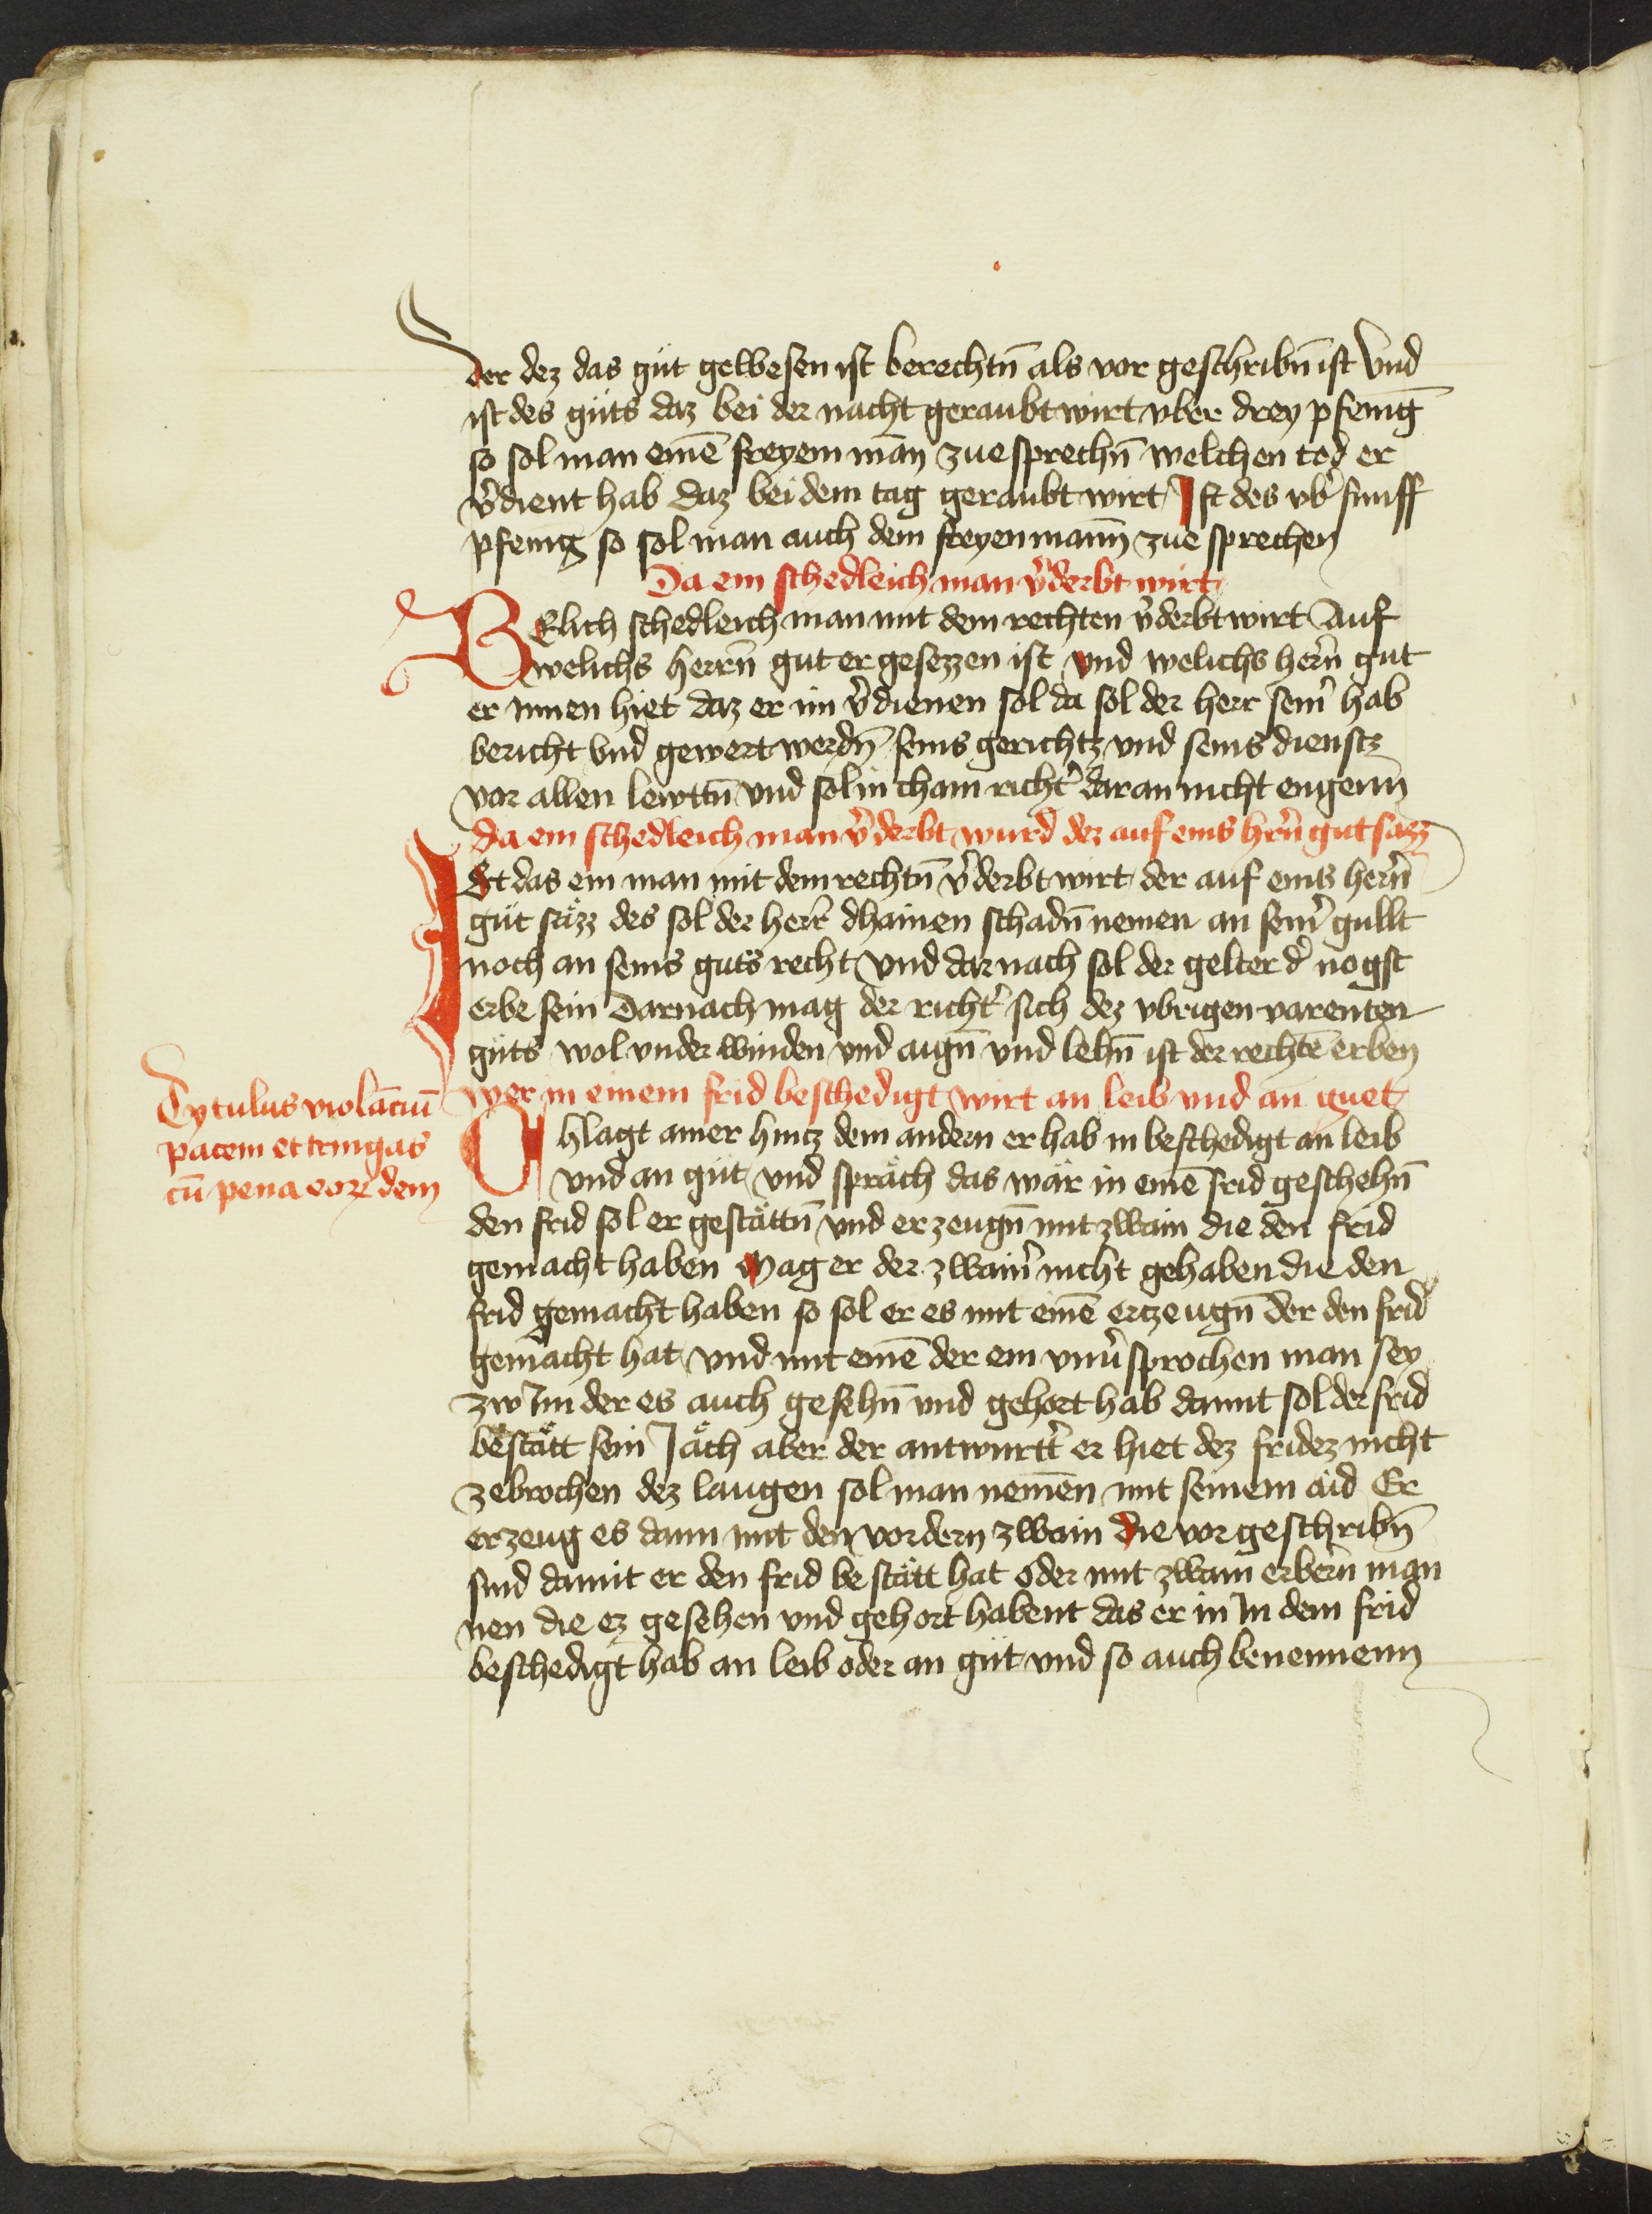 der dez das gůt gewesen ist berechtn̄ als vor geschribn̄ ist Vnd
ist des gůts daz bei der nacht geraubt wirt vber drey pfenīg
so sol man einē freyem man̄ zue sprechn̄ welchen tod er
v̾dient hab daz bei dem tag geraubt wirt Ist des vb̾ fumff
pfenīg so sol man auch dem freyen mann̄ zue sprechen
Da ein schedleich man v̾derbt wirt
WElich schedleich man mit dem rechten v̾derbt wirt Auf
welichs herrn̄ gut er gesezzen ist vnd welichs hern̄ gut
er Innen hiet daz er im v̾dienen sol da sol der herr sein̾ hab
bericht vnd gewert werdn̄ seins gerichtz vnd seins dienstz
vor allen lewttn̄ vnd sol in chain richt̾ daran nicht engenn̄
da ein schedleich man v̾derbt wurd der auf eins hr̄n gut sazz
ISt das ein man mit dem rechtn̄ v̾derbt wirt der auf eins hern̄
gůt säzz des sol der herr̾ dhainen schadn̄ nemen an sein̾ gullt
noch an seins guts recht vnd dar nach sol der gelter d̾ nogst
erbe sein Darnach mag der richt̾ sich dez vbrigen varenten
gůts wol vnder winden vnd aign̄ vnd lehn̄ ist der rechtē erben
wer in einem frid beschedigt wirt an leib vnd an guet
Tytulus violāciū
pacem et treugas
cū pena eoꝝ dem
Chlagt ainer hintz dem andern er hab in beschedigt an leib
vnd an gůt vnd spräch das wär in einē frid geschehn̄
den frid sol er gestättn̄ vnd erzeugn̄ mit zwain die den frid
gemacht haben Mag er der zwain̾ nicht gehaben die den
frid gemacht haben so sol er es mit einē ertzeugn̄ der den frid
gemacht hat vnd mit einē der ein vnu̾sprochen man sey
zw Im der es auch gesehn̄ vnd gehort hab damit sol der frid
bestätt sein Jäch aber der antwurtt̾ er hiet dez fridez nicht
zebrochen dez laugen sol man nemen mit seinem aid Er
erzeug es dann mit den vordern zwain die vor geschribn̄
sind damit er den frid be stätt hat oder mit zwain erbern̄ man
nen die ez gesehen vnd gehort habent das er in In dem frid
beschedigt hab an leib oder an gůt vnd so auch benennenn